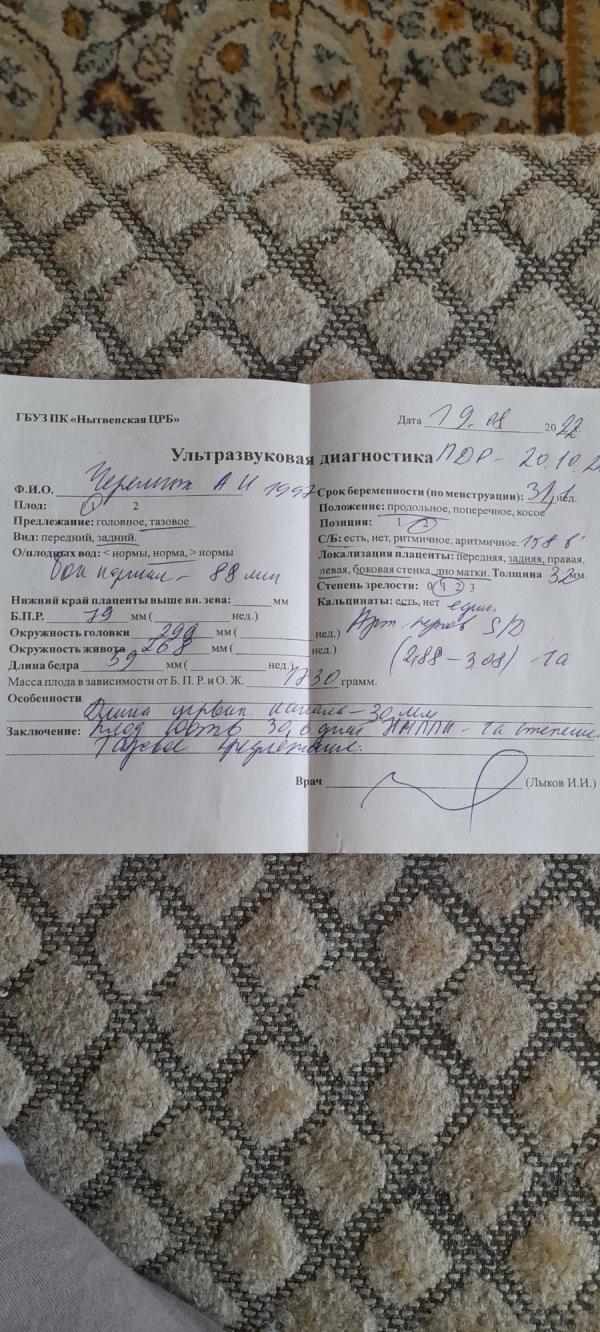 ГБУЗ ПК «Нытвенская ЦРБ»
Дата 19.08 2022
Ультразвуковая диагностика ПДР - 20.10.2
Ф.И.О. А И 1997
Срок беременности (по менструации): 31,1 нед.
Плод: 1 2
Положение: продольное, поперечное, косое
Предлежание: головное, тазовое
Позиция: 1 2
Вид: передний, задний.
С/Б: есть, нет, ритмичное, аритмичное. 158 в'
О/плодных вод: < нормы, норма, > нормы
Локализация плаценты: передняя, задняя, правая,
левая, боковая стенка, дно матки. Толщина 32 мм.
88 мм
Степень зрелости: 0 1 2 3
Нижний край плаценты выше вн. зева: мм
Кальцинаты: есть, нет един.
Б.П.Р. 79 мм ( нед.)
Окружность головки 299 мм ( нед.)
Арт. S/D
Окружность живота 268 мм ( нед.)
(2,88 - 3,08) 1а
Длина бедра 59 мм ( нед.)
Масса плода в зависимости от Б. П. Р. и О. Ж. 1730 грамм.
Особенности Длина цервик. канала - 30 мм
Заключение: Плод соотв 30, 6 дней НМППК - 1а степени.
Тазовое предлежание.
Врач (Лыков И.И.)